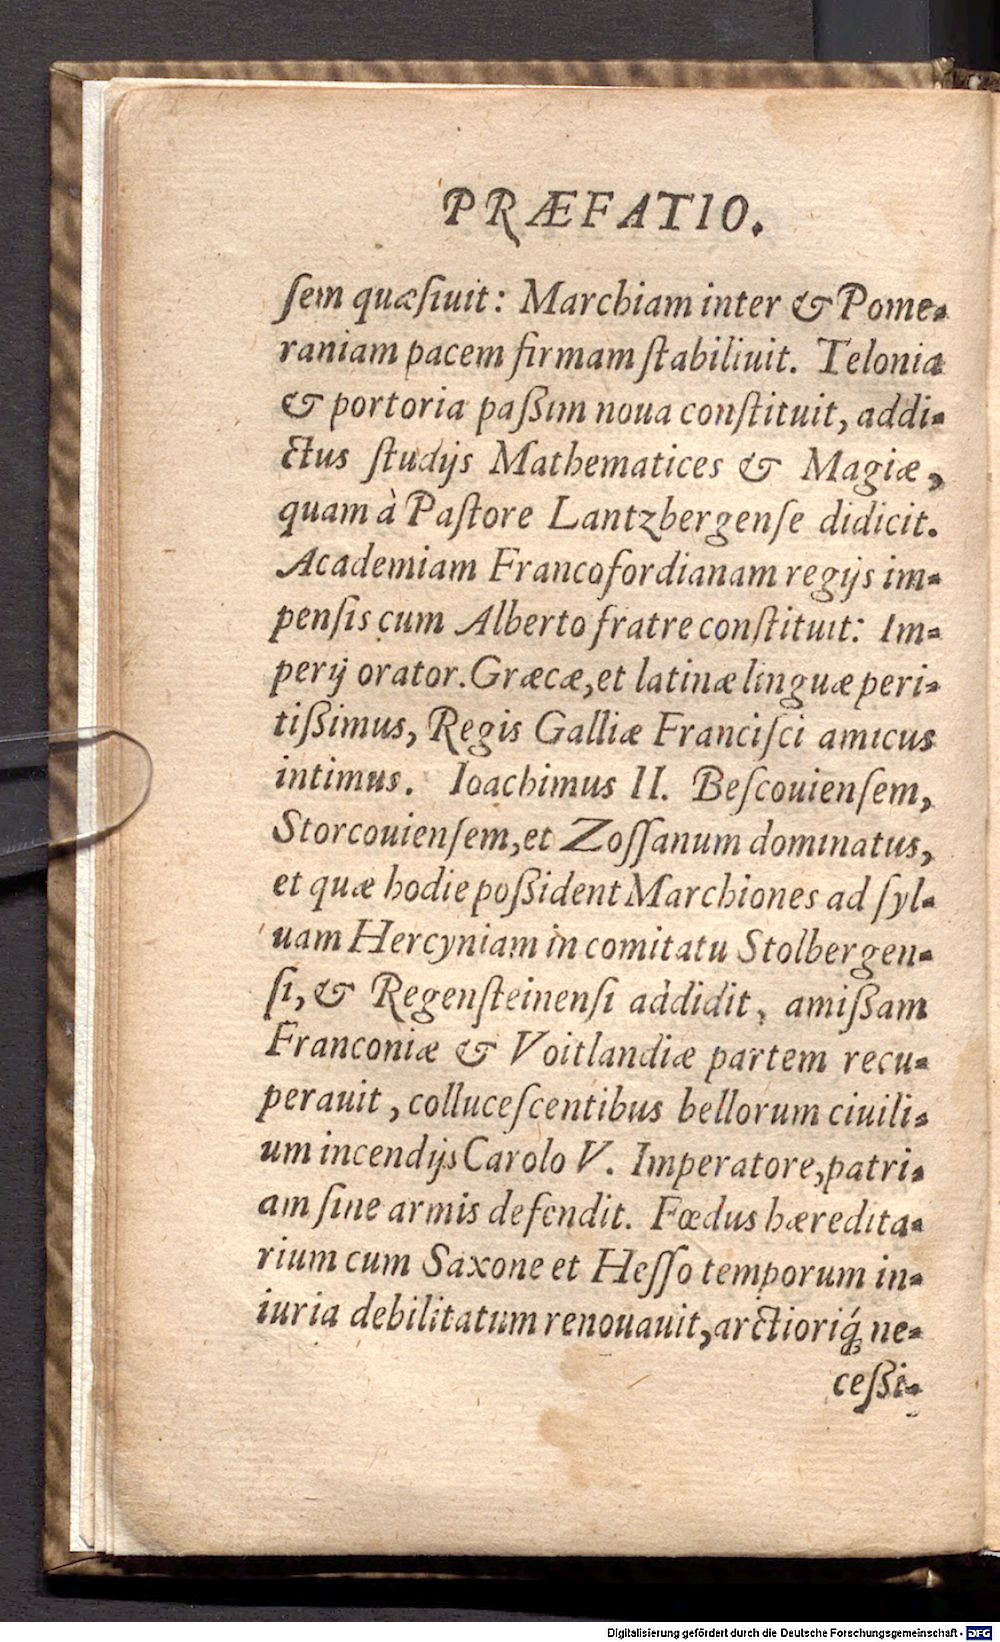 PRÆFATIO.
ſem quæſiuit: Marchiam inter & Pome-
raniam pacem firmam ſtabiliuit. Telonia
& portoria paßim noua conſtituit, addi-
ctus ſtudijs Mathematices & Magiæ,
quam à Paſtore Lantzbergenſe didicit.
Academiam Francofordianam regijs im-
penſis cum Alberto fratre conſtituit: Im-
perij orator. Græcæ, et latinæ linguæ peri-
tißimus, Regis Galliæ Franciſci amicus
intimus. Ioachimus II. Beſcouienſem,
Storcouienſem, et Zoſſanum dominatus,
et quæ hodie poßident Marchiones ad ſyl-
uam Hercyniam in comitatu Stolbergen-
ſi, & Regenſteinenſi addidit, amißam
Franconiæ & Voitlandiæ partem recu-
perauit, colluceſcentibus bellorum ciuili-
um incendijs Carolo V. Imperatore, patri-
am ſine armis defendit. Fœdus hæredita-
rium cum Saxone et Heſſo temporum in-
iuria debilitatum renouauit, arctioriq́; ne-
ceßi-
Digitalisierung gefördert durch die Deutsche Forschungsgemeinschaft - DFG